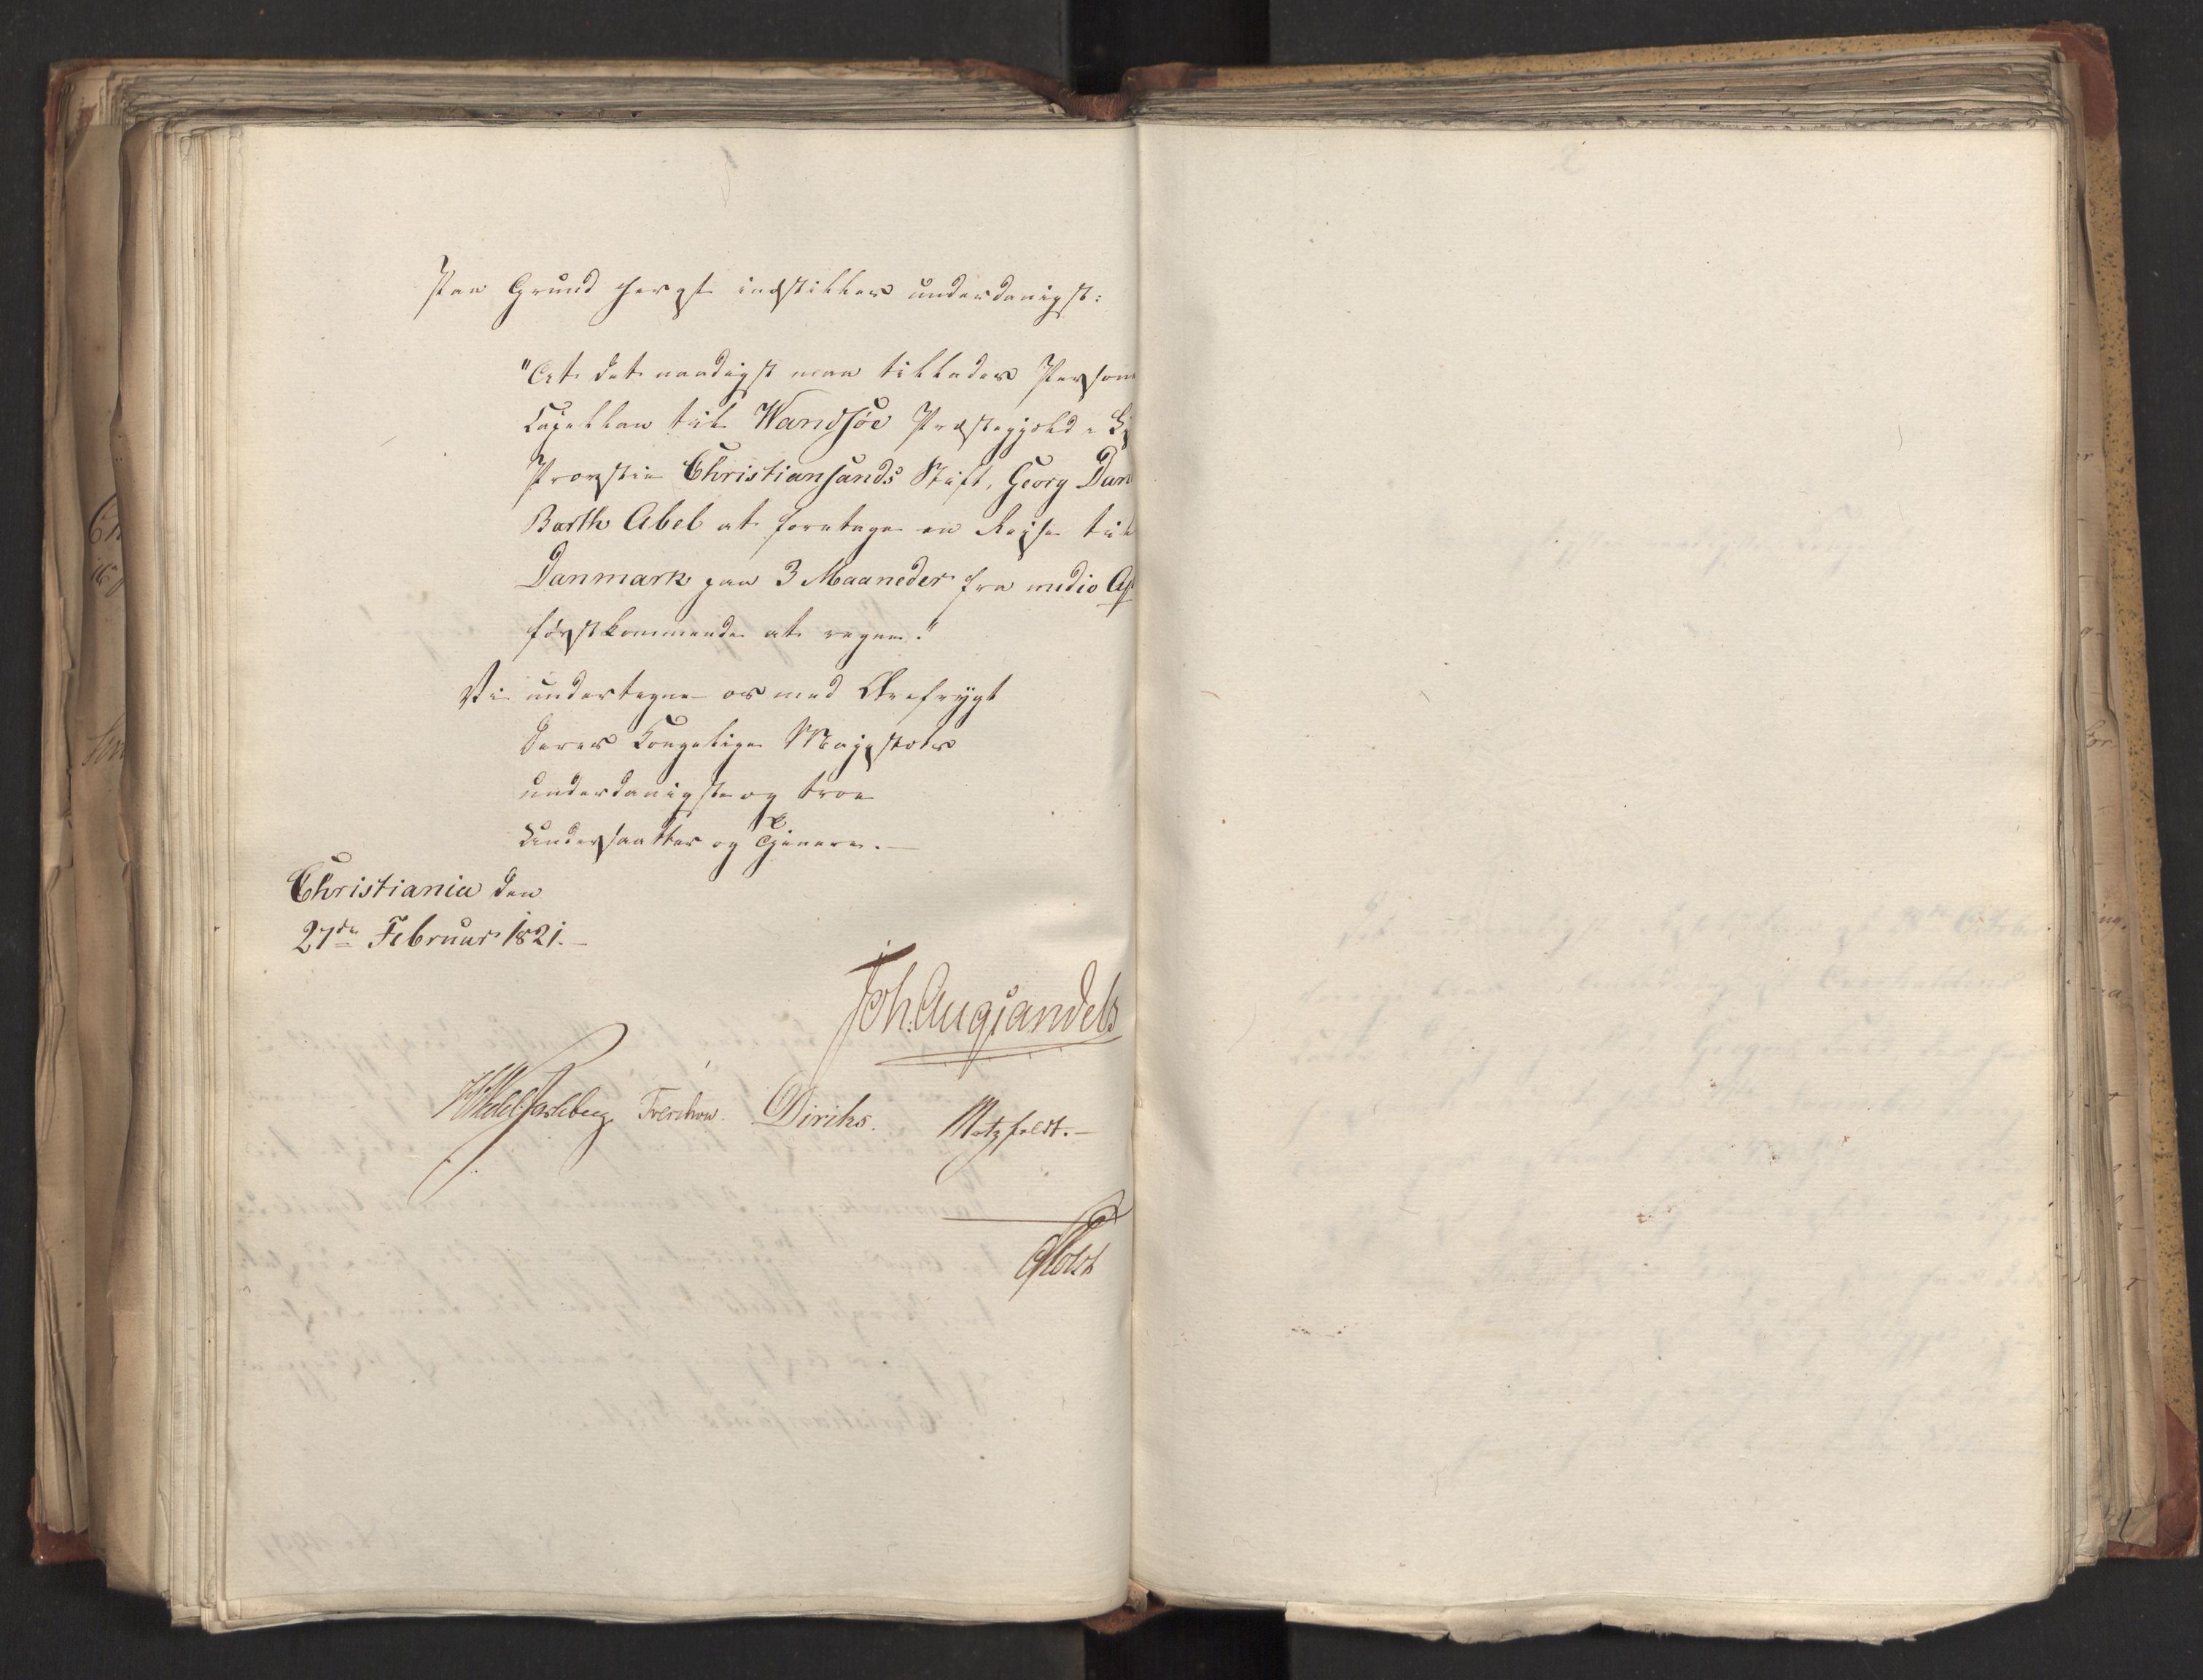 Paa Grund heraf indstilles underdanigst:
"At det naadigst maa tillades Person
Capellan til Wandsøe Præstegjeld i
Provstie Christiansands Stift, Georg Dan
Barth Abel at foretage en Reise til
Danmark paa 3 Maaneder fra medio Ap
førstkommende at regne."
Vi undertegne os med Ærefrygt
Deres Kongelige Majestæts
underdanigste og troe
Undersaatter og Tjenere.
Christiania den
27de Februar 1821.
Joh. Aug Sandels
Wedel Jarlsberg Treschow. Diriks. Motzfeldt.
Holst